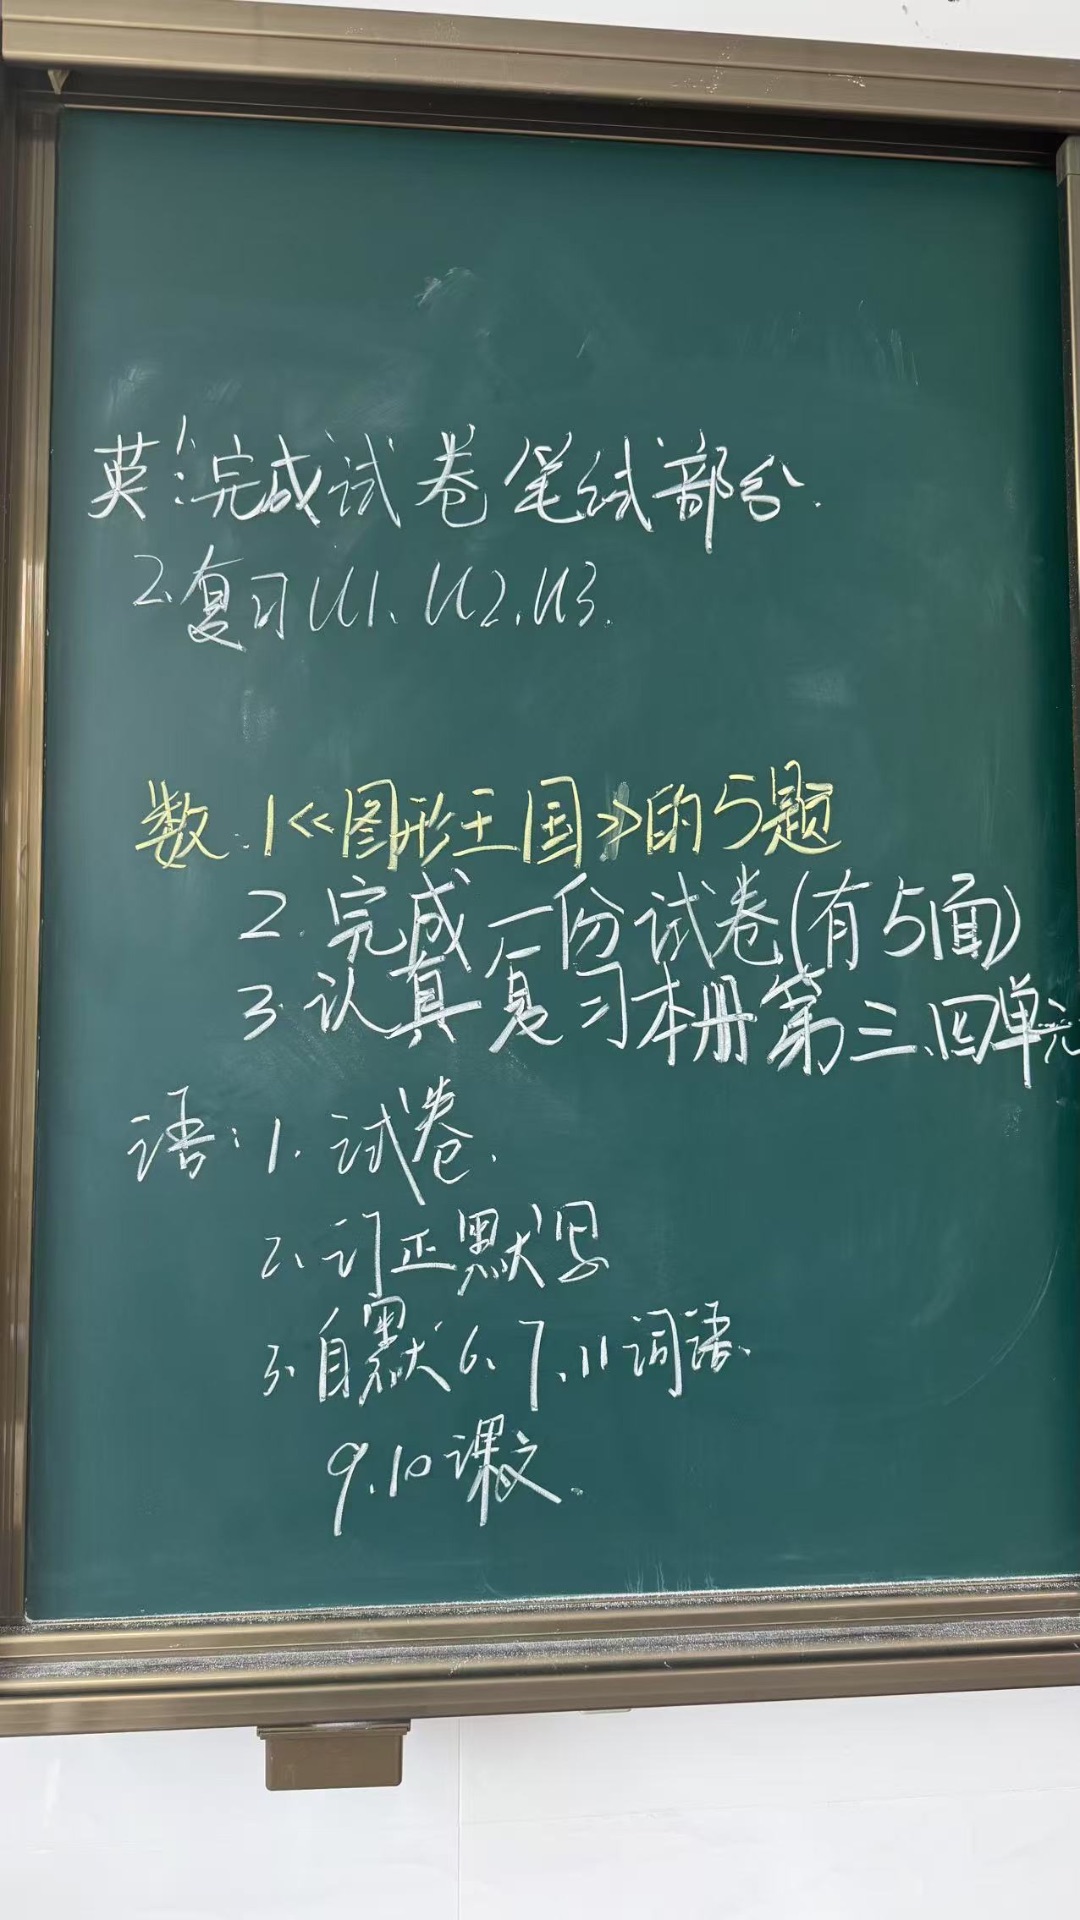 英:1.完成试卷笔试部分.
2.复习U1、U2、U3.
数:1《图形王国》的5题
2.完成一份试卷(有5面)
3.认真复习本册第三、四单元
语:1.试卷.
2、订正默写
3.自默6、7、11词语、
9.10课文.